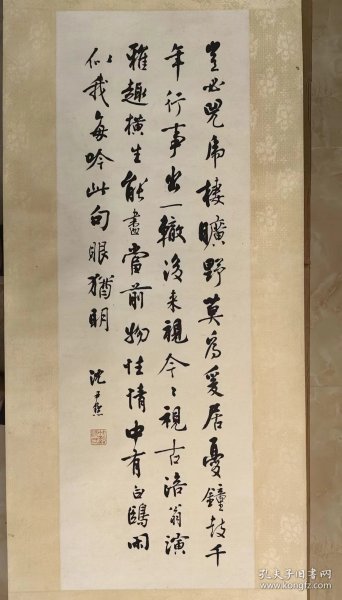 豈必兕虎棲曠野莫為爰居憂鐘鼓千
年行事出一轍後来視今〻視古涪翁演
雅趣橫生能盡當前物性情中有白鷗閒
似我每吟此句眼猶明
沈尹默
孔夫子旧书网
www.kongfz.com